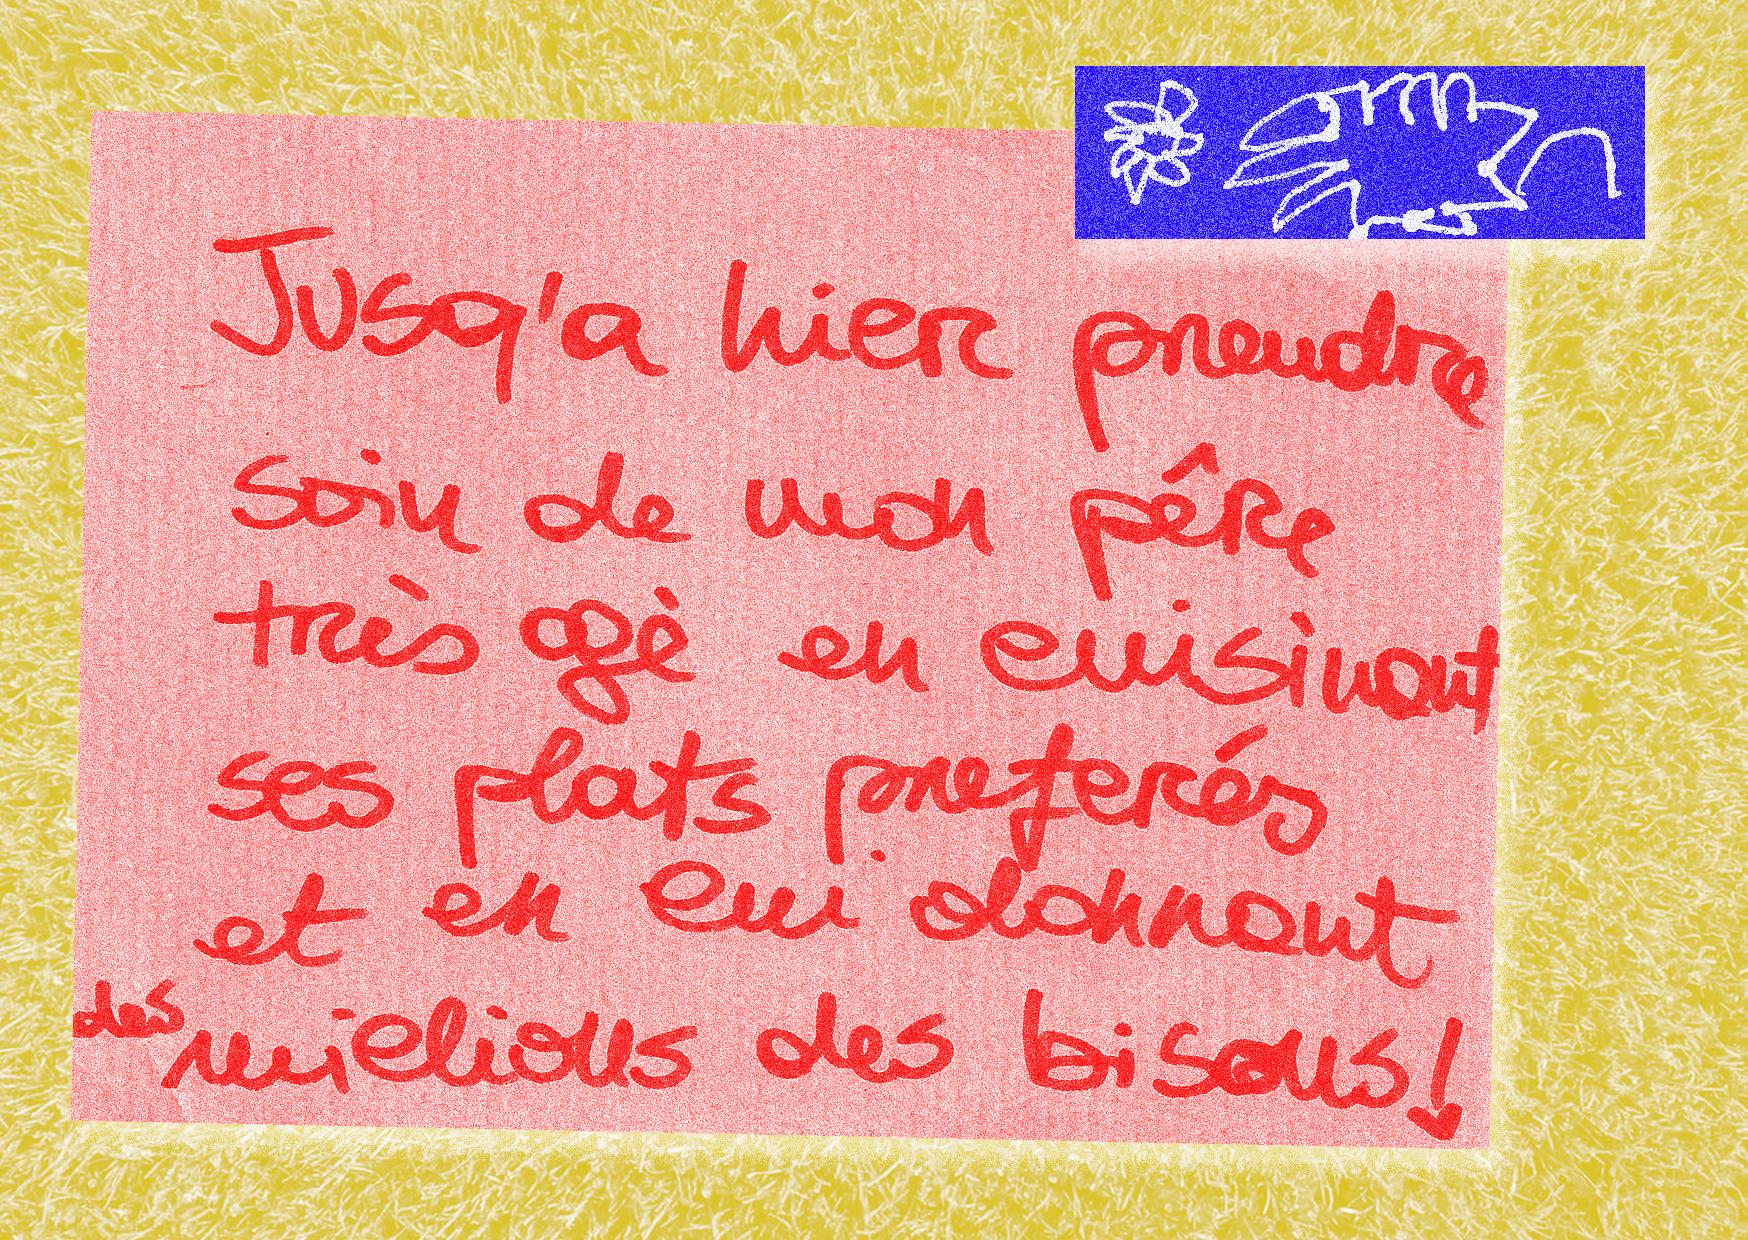 Jusq'a hier prendre
soin de mon pêre
très agè en cuisinant
ses plats preferés
et en lui donnant
des mielions des bisous!